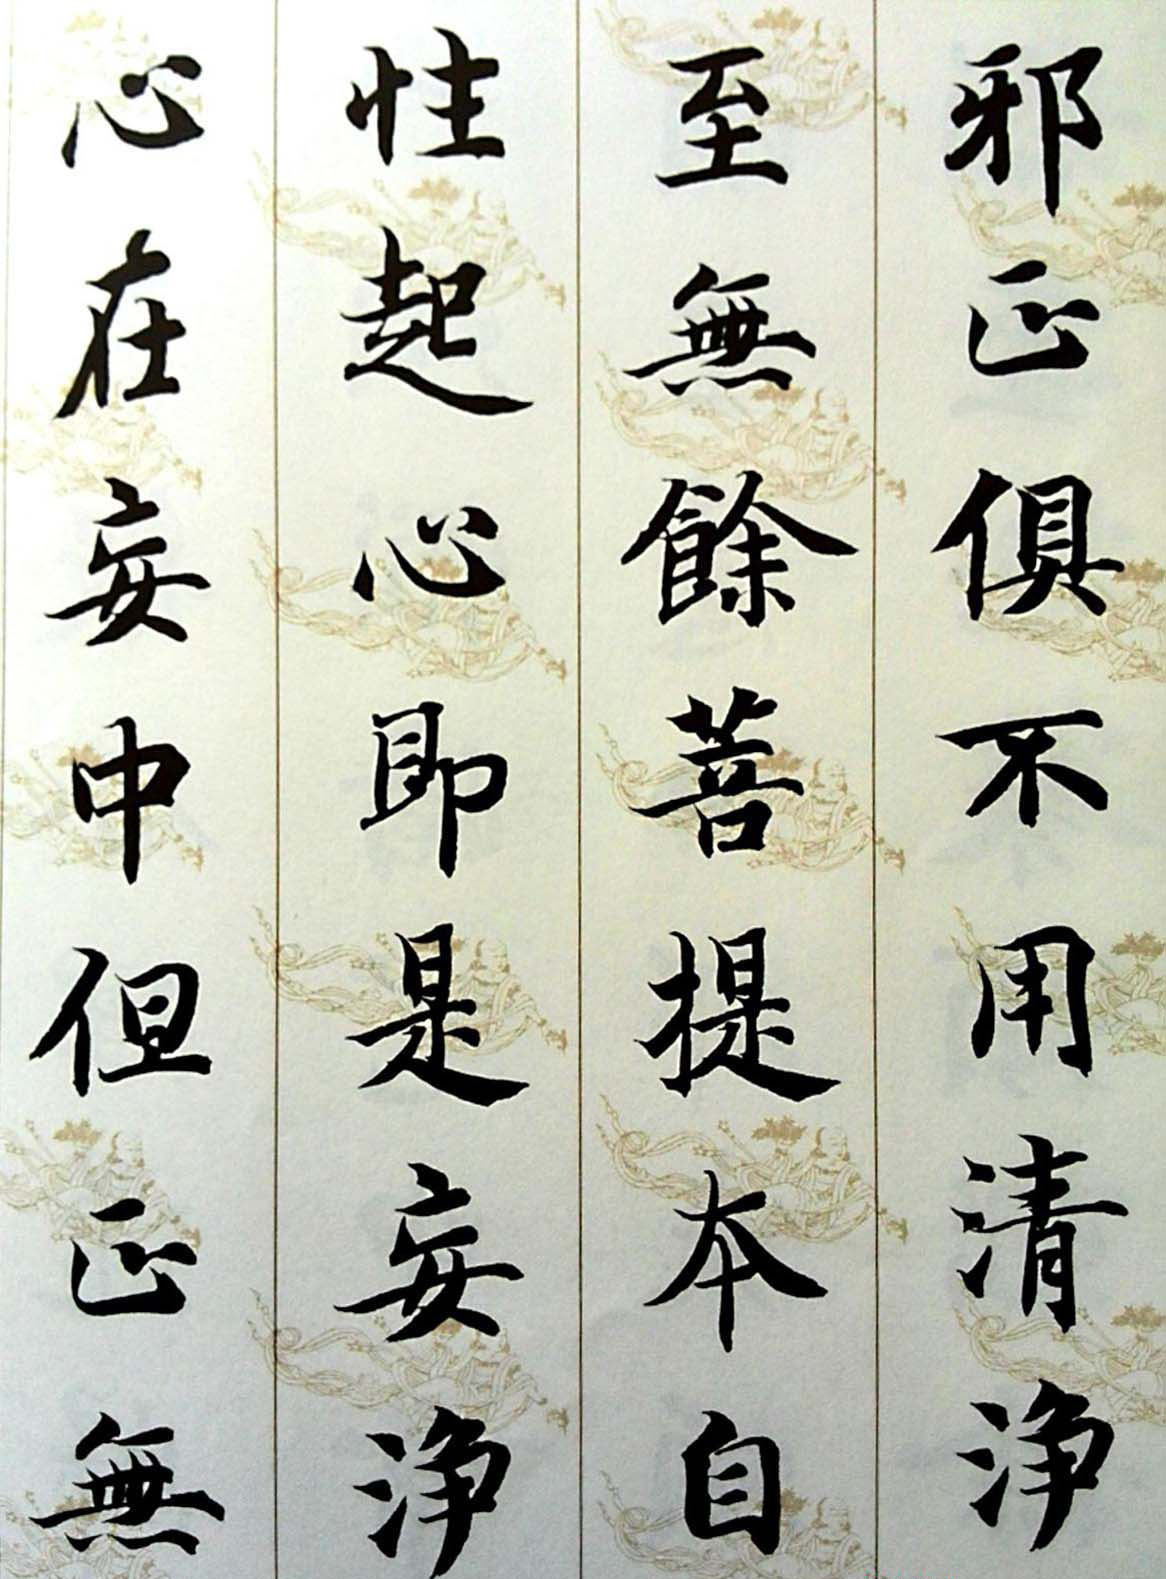 邪正俱不用清浄
至無餘菩提本自
性起心即是妄浄
心在妄中但正無